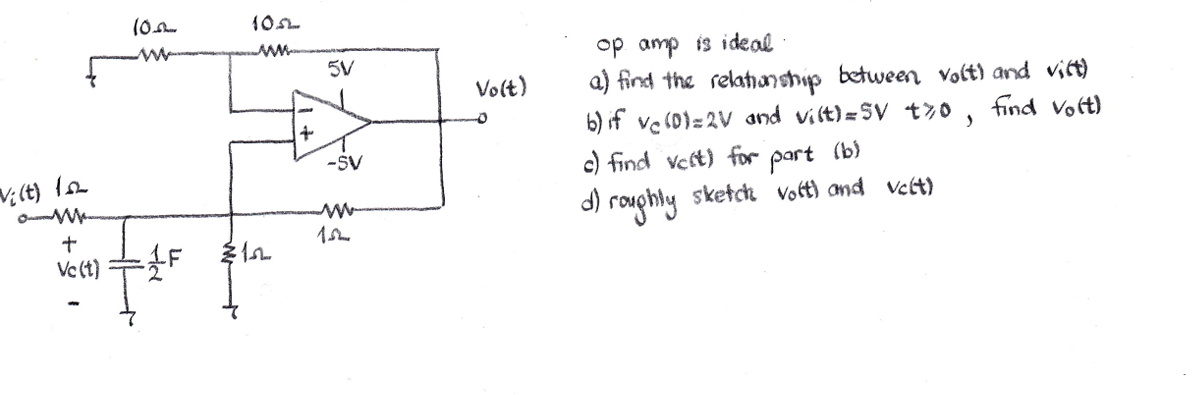 10Ω 10Ω
5V
Vo(t)
-
+
-5V
Vi(t) 1Ω
1Ω
+
Vc(t)
-
1/2 F
1Ω
op amp is ideal.
a) find the relationship between vo(t) and vi(t)
b) if vc(0)=2V and vi(t)=5V t≥0 , find vo(t)
c) find vc(t) for part (b)
d) roughly sketch vo(t) and vc(t)